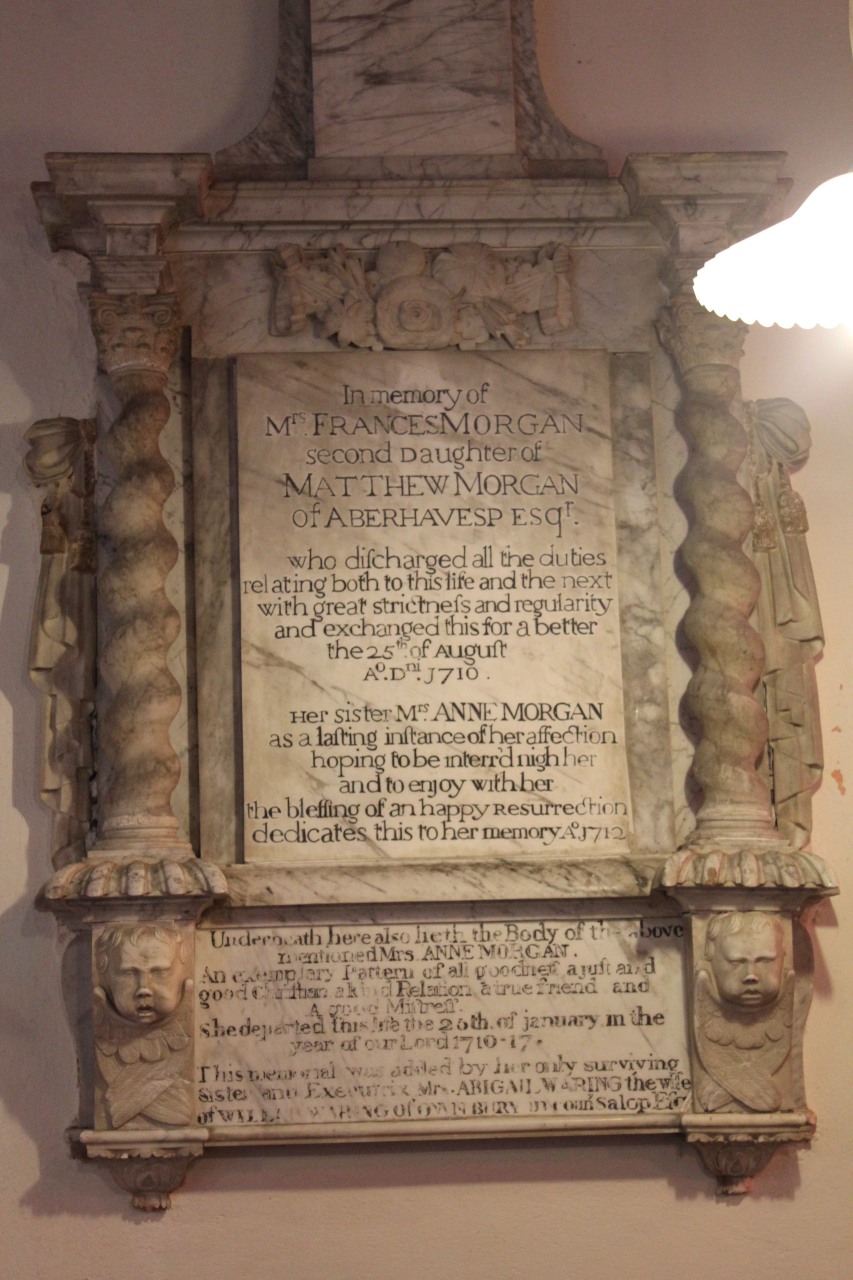 In memory of
Mrs. FRANCES MORGAN
second Daughter of
MATTHEW MORGAN
of ABERHAVESP ESqr.
who diſcharged all the duties
relating both to this life and the next
with great strictneſs and regularity
and exchanged this for a better
the 25th. of Auguſt
Ao. Dni. J710.
Her sister Mrs. ANNE MORGAN
as a laſting inſtance of her affection
hoping to be interr'd nigh her
and to enjoy with her
the bleſſing of an happy Resurrection
dedicates this to her memory Ao. J712
Underneath here also lieth the Body of the above
mentioned Mrs. ANNE MORGAN.
An exemplary Pattern of all goodneſs a juſt and
good Chriſtian a kind Relation a true friend and
A good Miſtreſſ.
She departed this life the 26th. of january in the
year of our Lord 1716-17.
This memorial was added by her only surviving
Sister and Executrix Mrs. ABIGAIL WARING the wife
of WILLIAM WARING of in Salop Eſq